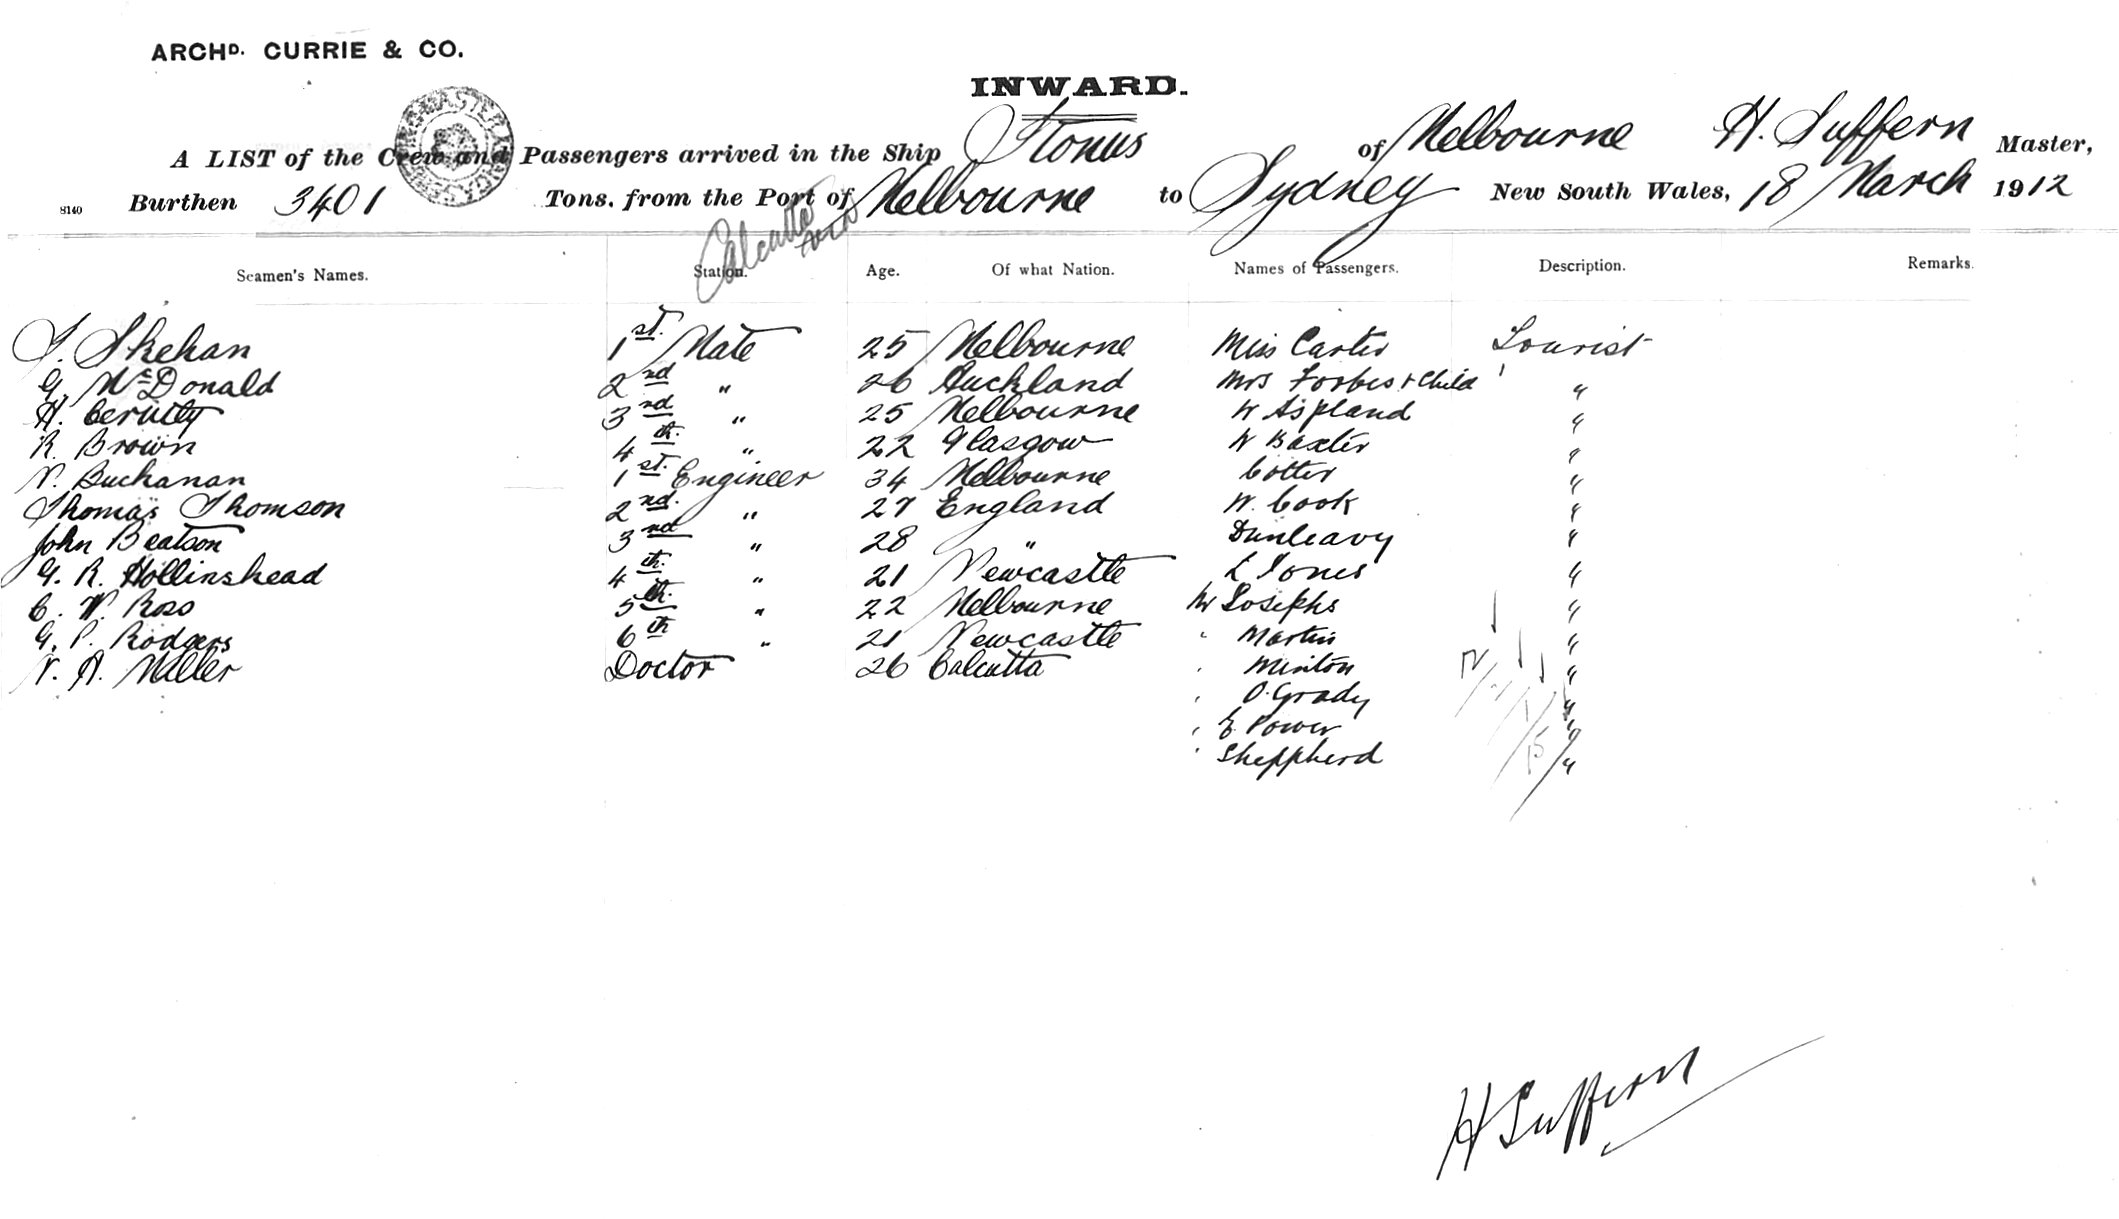 ARCHD. CURRIE & CO.
INWARD.
A LIST of the Crew and Passengers arrived in the Ship Itonus of Melbourne H. Suffern Master,
8140 Burthen 3401 Tons, from the Port of Melbourne to Sydney New South Wales, 18 March 1912
Calcutta
Seamen's Names. Station. Age. Of what Nation. Names of Passengers. Description. Remarks.
T. Skehan 1st. Mate 25 Melbourne Miss Carter Tourist
G. McDonald 2nd " 26 Auckland Mrs Forbes + Child "
H. Cerutty 3rd " 25 Melbourne W Aspland "
R. Brown 4th. " 22 Glasgow W Baxter "
N. Buchanan 1st. Engineer 34 Melbourne Cotter "
Thomas Thomson 2nd. " 27 England W. Cook "
John Beatson 3nd " 28 " Dunleavy "
G. R. Hollinshead 4th. " 21 Newcastle L Jones "
C. W. Ross 5th. " 22 Melbourne Mr Josephs "
G. P. Rodgers 6th " 21 Newcastle " Martin "
N. A. Miller Doctor 26 Calcutta " Minton "
" O'Grady "
" E Power "
" Sheppherd "
H Suffern